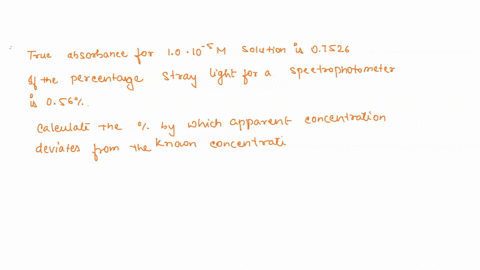 True absorbance for 1.0 · 10⁻⁵ M solution is 0.7526
If the percentage stray light for a spectrophotometer
is 0.56%.
Calculate the % by which apparent concentration
deviates from the known concentrati